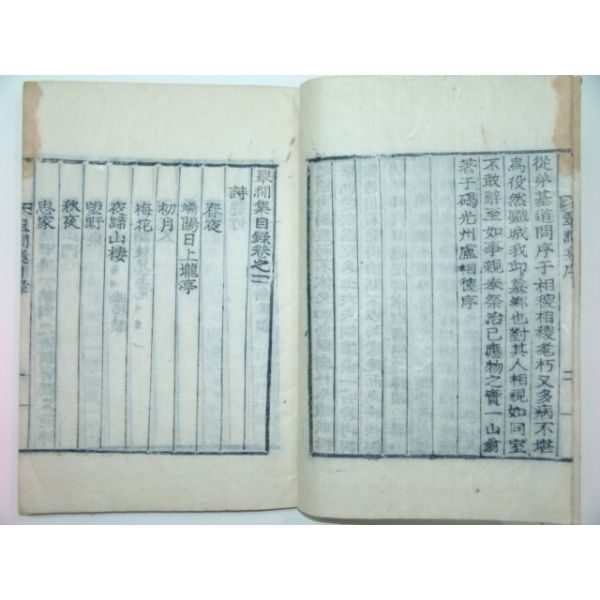 從弟基道問序于相稷相稷耄朽又多病不堪
爲役然職城我卯墓鄉也對其人相視如同室
不敢辭至如事親奉祭治己應物之實一山翁
著于碣光州盧相稷序
翠澗集目錄卷之一
詩
春夜
端陽日上壠亭
初月
梅花
夜歸山棲
望野
秋夜
思家